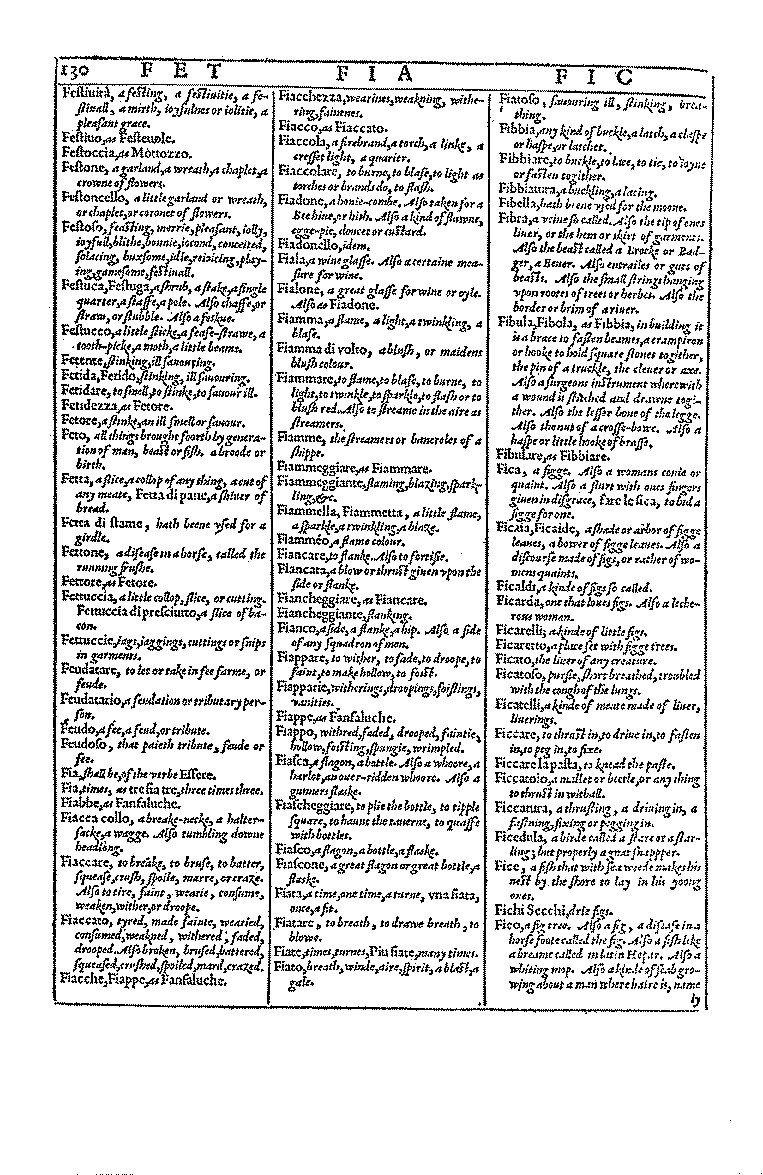 130 F E T F I A F I C
Festiuità, a festing, a festiuitie, a fe-
stiuall, a mirth, ioyfulnes or iolitie, a
pleasant grace.
Festiuo, as Festeuole.
Festoccia, as Mottozzo.
Festone, a garland, a wreath, a chaplet, a
crowne of flowers.
Festoncello, a little garland or wreath,
or chaplet, or coronet of flowers.
Festoso, feasting, merrie, pleasant, iolly,
ioyfull, blithe, bonnie, iocond, conceited,
solacing, buxsome, idle, reioicing, play-
ing, gamesome, festiuall.
Festuca, Festuga, a shrub, a stake, a single
quarter, a staffe, a pole. Also chaffe, or
straw, or stubble. Also a feskue.
Festucco, a little sticke, a fease-strawe, a
tooth-picke, a moth, a little beame.
Fetente, stinking, ill sauouring.
Fetida, Fetido, stinking, ill sauouring.
Fetidare, to smell, to stinke, to sauour ill.
Fetidezza, as Fetore.
Fetore, a stinke, an ill smell or sauour.
Feto, all things brought foorth by genera-
tion of man, beast or fish. a broode or
birth.
Fetta, a slice, a collop of any thing, a cut of
any meate, Fetta di pane, a shiuer of
bread.
Fetta di stame, hath beene vsed for a
girdle.
Fettone, a disease in a horse, called the
running frushe.
Fettore, as Fetore.
Fettuccia, a little collop, slice, or cutting.
Fettuccia di presciutto, a slice of ba-
con.
Fettuccie, iags, iaggings, cuttings or snips
in garments.
Feudatare, to let or take in fee farme, or
feude.
Feudatario, a feudation or tributary per-
son.
Feudo, a fee, a feud, or tribute.
Feudoso, that paieth tribute, feude or
fee.
Fia, shall be, of the verbe Essere.
Fia, times, as tre fia tre, three times three.
Fiabbe, as Fanfaluche.
Fiacca collo, a breake-necke, a halter-
sacke, a wagge. Also tumbling downe
headlong.
Fiaccare, to breake, to bruse, to batter,
squease, crush, spoile, marre, or craze.
Also to tire, faint, wearie, consume,
weaken, wither, or droope.
Fiaccato, tyred, made fainte, wearied,
consumed, weakned, withered, faded,
drooped. Also broken, brused, battered,
squeased, crushed, spoiled, mard, crazed.
Fiacche, Fiappe, as Fanfaluche.
Fiacchezza, wearines, weakning, withe-
ring, faintnes.
Fiacco, as Fiaccato.
Fiaccola, a firebrand, a torch, a linke, a
cresset light, a quarier.
Fiaccolare, to burne, to blase, to light as
torches or brands do, to flash.
Fiadone, a honie-combe. Also taken for a
Bee hiue, or hiuh. Also a kind of flawne,
egge-pie, doucet or custard.
Fiadoncello, idem.
Fiala, a wine glasse. Also a certaine mea-
sure for wine.
Fialone, a great glasse for wine or oyle.
Also as Fiadone.
Fiamma, a flame, a light, a twinkling, a
blase.
Fiamma di volto, a blush, or maidens
blush colour.
Fiammare, to flame, to blase, to burne, to
light, to twinkle, to sparkle, to flash or to
blush red. Also to streame in the aire as
streamers.
Fiamme, the streamers or bancroles of a
shippe.
Fiammeggiare, as Fiammare.
Fiammeggiante, flaming, blazing, spark-
ling, &c.
Fiammella, Fiammetta, a little flame,
a sparkle, a twinkling, a blaze.
Fiamméo, a flame colour.
Fiancare, to flanke. Also to fortifie.
Fiancata, a blow or thrust giuen vpon the
side or flanke.
Fiancheggiare, as Fiancare.
Fiancheggiante, flanking.
Fianco, a side, a flanke, a hip. Also a side
of any squadron of men.
Fiappare, to wither, to fade, to droope, to
faint, to make hollow, to foist.
Fiapparie, witherings, droopings, foistings,
vanities.
Fiappe, as Fanfaluche.
Fiappo, withred, faded, drooped, faintie,
hollow, foisting, spungie, wrimpled.
Fiasca, a flagon, a bottle. Also a whoore, a
harlot, an ouer-ridden whoore. Also a
gunners flaske.
Fiascheggiare, to plie the bottle, to tipple
square, to haunt the tauerne, to quaffe
with bottles.
Fiasco, a flagon, a bottle, a flaske.
Fiascone, a great flagon or great bottle, a
flaske.
Fiata, a time, one time, a turne, vna fiata,
once, a fit.
Fiatare, to breath, to drawe breath, to
blowe.
Fiate, times, turnes, Piu fiate, many times.
Fiato, breath, winde, aire, spirit, a blast, a
gale.
Fiatoso, sauouring ill, stinking, brea-
thing.
Fibbia, any kind of buckle, a latch, a claspe
or haspe, or latchet.
Fibbiare, to buckle, to lace, to tie, to ioyne
or fasten togither.
Fibbiatura, a buckling, a lacing.
Fibella, hath beene vsed for the moone.
Fibra, a veine so called. Also the tip of ones
liuer, or the hem or skirt of garments.
Also the beast called a Brocke or Bad-
ger, a Beuer. Also entrailes or guts of
beasts. Also the small strings hanging
vpon rootes of trees or herbes. Also the
border or brim of a riuer.
Fibula, Fibola, as Fibbia, in building it
is a brace to fasten beames, a crampiron
or hooke to hold square stones together,
the pin of a truckle, the cleuer or axe.
Also a surgeons instrument wherewith
a wound is stitched and drawne togi-
ther. Also the lesser bone of the legge.
Also the nut of a crosse-bowe. Also a
haspe or little hooke of brasse.
Fibulare, as Fibbiare.
Fica, a figge. Also a womans conie or
quaint. Also a flurt with ones fingers
giuen in disgrace, fare le fica, to bid a
figge for one.
Ficaia, Ficaide, a shade or arbor of figge
leaues, a bower of figge leaues. Also a
discourse made of figs, or rather of wo-
mens quaints.
Ficaldi, a kinde of figs so called.
Ficarda, one that loues figs. Also a leche-
rous woman.
Ficarelli, a kinde of little figs.
Ficaretto, a place set with figge trees.
Ficato, the liuer of any creature.
Ficatoso, pursie, short breathed, troubled
with the cough of the lungs.
Ficatelli, a kinde of meate made of liuer,
liuerings.
Ficcare, to thrust in, to driue in, to fasten
in, to peg in, to fixe.
Ficcare la pasta, to knead the paste.
Ficcatoio, a mallet or beetle, or any thing
to thrust in withall.
Ficcatura, a thrusting, a driuing in, a
fastning, fixing or pegging in.
Ficedula, a birde called a stare or a star-
ling; but properly a gnat snapper.
Fice, a fish that with sea weede makes his
nest by the shore to lay in his young
ones.
Fichi Secchi, drie figs.
Fico, a fig tree. Also a fig, a disease in a
horse foote called the fig. Also a fish like
a breame called in latin Hepar. Also a
whiting mop. Also a kinde of scab gro-
wing about a man where haire is, name
ly